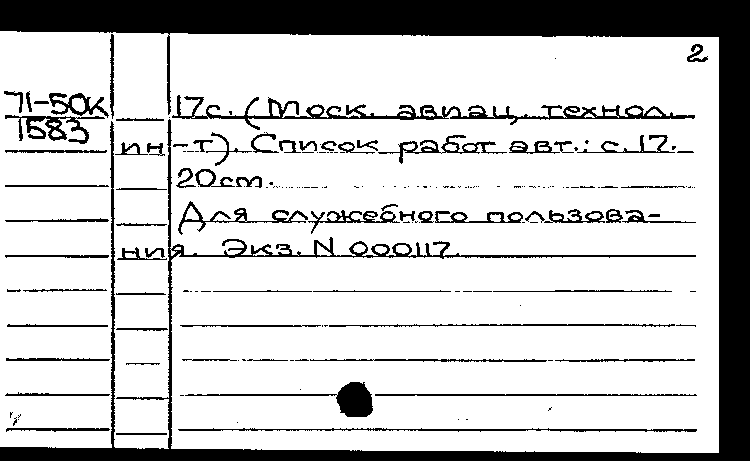 2
71-50к 17с. (Моск. авиац. технол.
1583
ин-т). Список работ авт.: с. 17.
20см.
Для служебного пользова-
ния. Экз. N 000117.